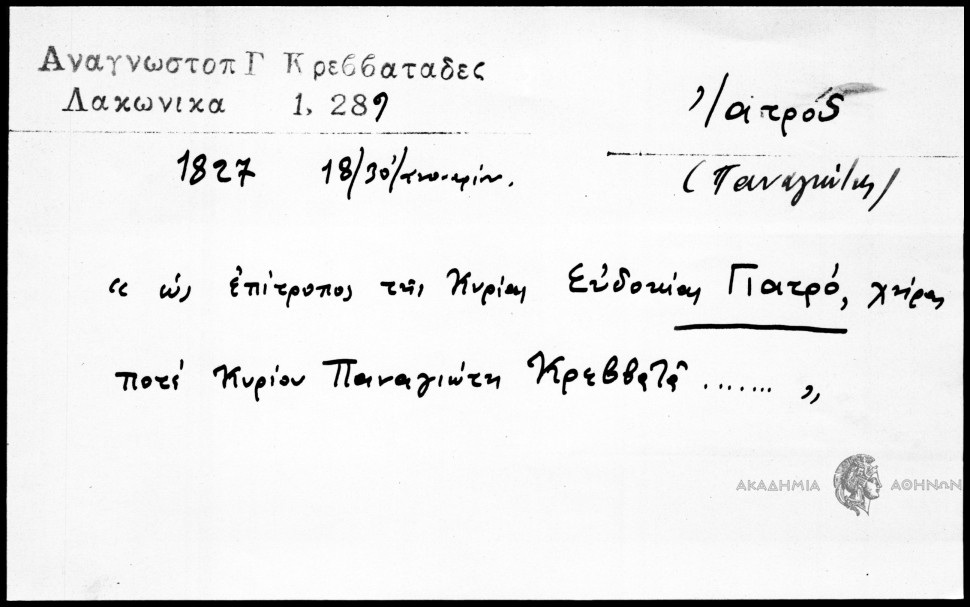 Αναγνωστοπ Γ Κρεββαταδες
Λακωνικα 1, 289
Γιατρός
1827 18/30
(Παναγιώτης)
« ὡς ἐπίτροπος τῆς Κυρίας Εὐδοκίας Γιατρό, χήρας
ποτέ Κυρίου Παναγιώτη Κρεββατᾶ ....... „
ΑΚΑΔΗΜΙΑ ΑΘΗΝΩΝ